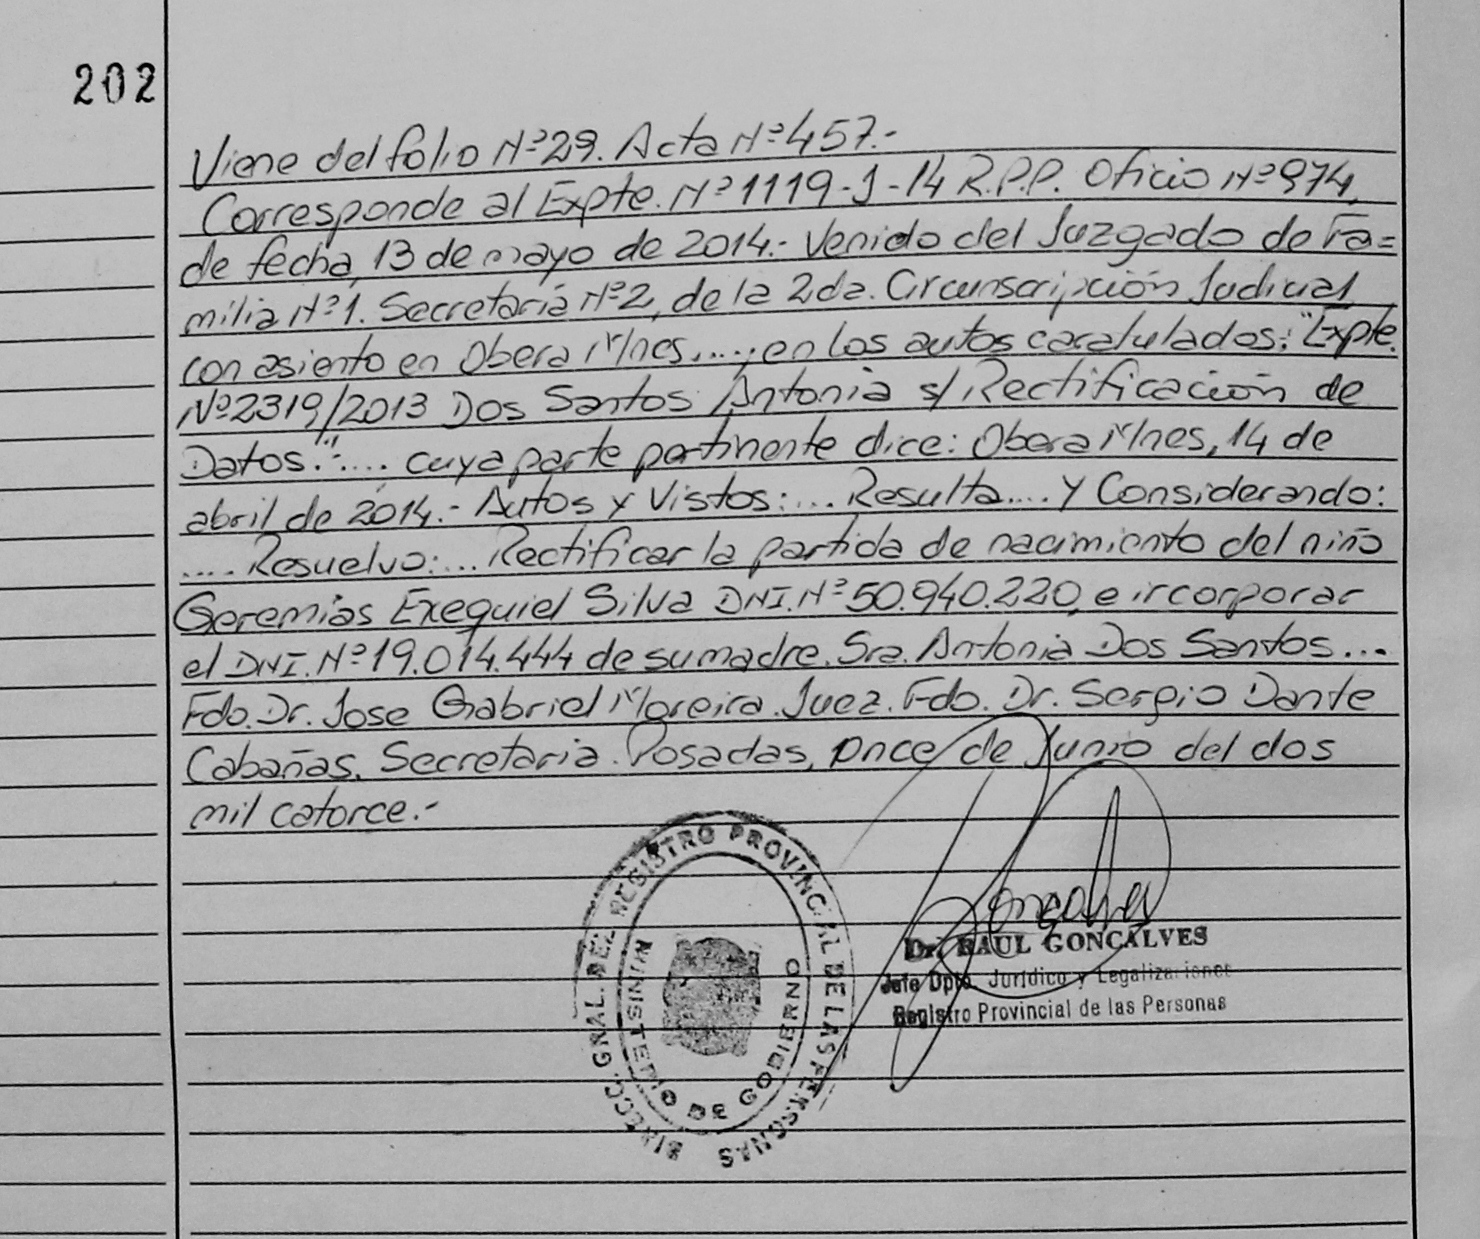 202
Viene del folio Nº29. Acta Nº457.-
Corresponde al Expte. Nº1119-J-14 R.P.P. Oficio Nº974,
de fecha, 13 de mayo de 2014.- Venido del Juzgado de Fa=
milia Nº1. Secretaria Nº2, de la 2da. Circunscripción Judicial,
con asiento en Obera M/nes....; en los autos caratulados; "Expte.
Nº2319/2013 Dos Santos Antonia s/ Rectificación de
Datos."..... cuya parte pertinente dice: Obera M/nes, 14 de
abril de 2014.- Autos y Vistos:... Resulta.... Y Considerando:
.... Resuelvo:... Rectificar la partida de nacimiento del niño
Geremias Exequiel Silva DNI. Nº50.940.220, e incorporar
el DNI. Nº19.014.444 de su madre. Sra. Antonia Dos Santos...
Fdo. Dr. Jose Gabriel Moreira. Juez. Fdo. Dr. Sergio Dante
Cabañas. Secretaria. Posadas, once de Junio del dos
mil catorce.-
DIRECC. GRAL. DEL REGISTRO PROVINCIAL DE LAS PERSONAS
MINISTERIO DE GOBIERNO
Dr. RAUL GONCALVES
Jefe Dpto. Jurídico y Legalizaciones
Registro Provincial de las Personas